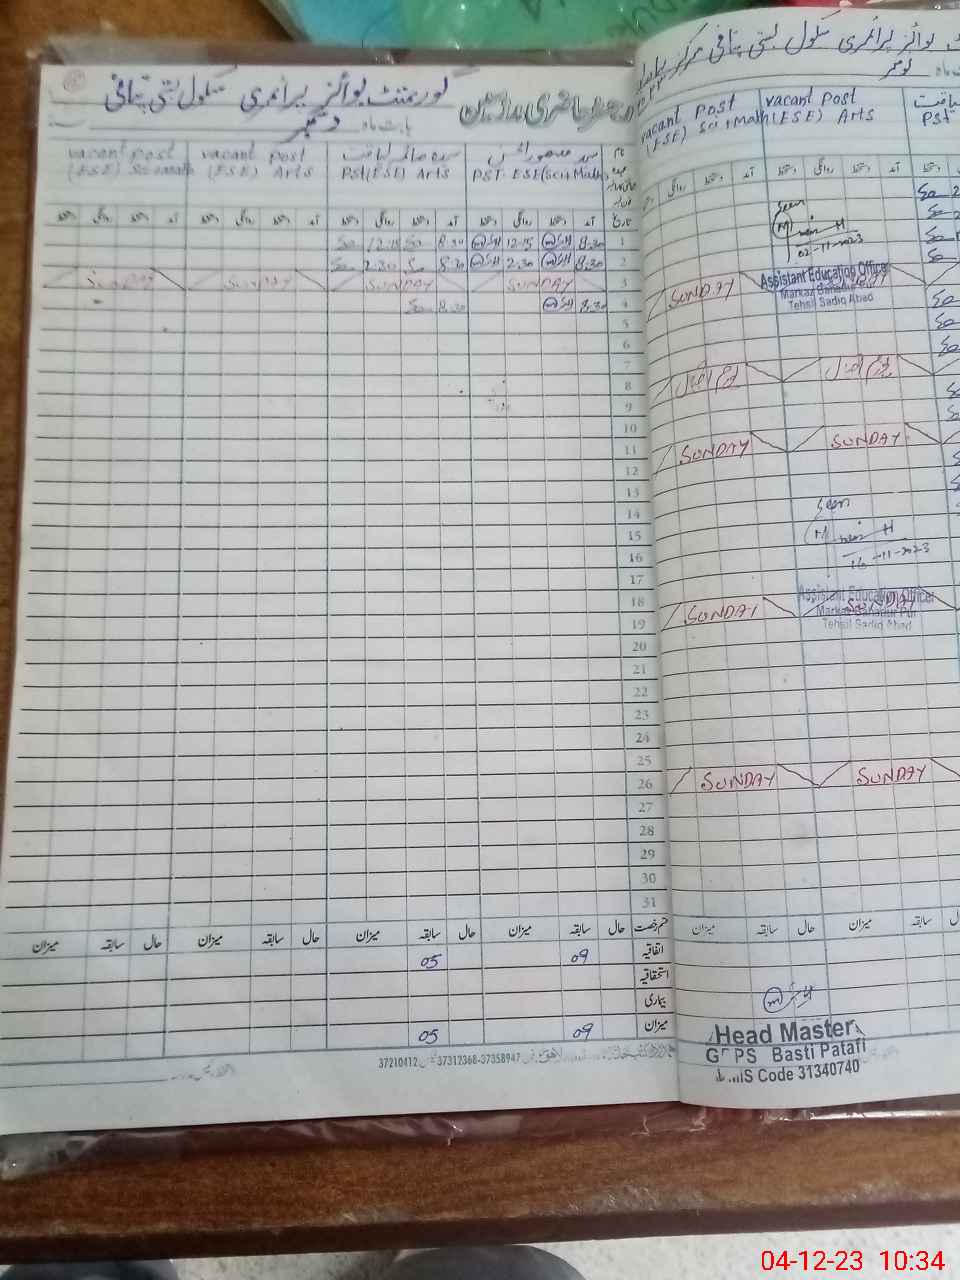 گورنمنٹ بوائز پرائمری سکول بستی پتافی
رجسٹر حاضری مدرسین
بابت ماہ دسمبر
vacant post vacant post
(ESE) Sci+math (ESE) Arts PSt(ESE) Arts PST-ESE(Sci+Math)
تاریخ آمد دستخط روانگی دستخط آمد دستخط روانگی دستخط آمد دستخط روانگی دستخط آمد دستخط روانگی دستخط
1 8.30 12-15 8.30 12-15
2 8.30 2.30 8.30 2.30
3 SUNDAY SUNDAY SUNDAY SUNDAY
4 8.30 8.30
5
6
7
8
9
10
11
12
13
14
15
16
17
18
19
20
21
22
23
24
25
26
27
28
29
30
31
حال سابقہ میزان حال سابقہ میزان حال سابقہ میزان حال سابقہ میزان
اتفاقیہ 09 05
استحقاقیہ
بیماری
میزان 09 05
37210412 37312368-37358947
بوائز پرائمری سکول بستی پتافی مرکز
ماہ نومبر
vacant post vacant post
(ESE) Sci+Math (ESE) Arts PST
آمد دستخط روانگی دستخط آمد دستخط روانگی
Seen
02-11-2023
Assistant Education Officer
Markaz Bahadur Pur
Tehsil Sadiq Abad
SUNDAY
یوم اقبال یوم اقبال
SUNDAY SUNDAY
Seen
16-11-2023
Assistant Education Officer
Markaz Bahadur Pur
Tehsil Sadiq Abad
SUNDAY SUNDAY
SUNDAY SUNDAY
حال سابقہ میزان حال سابقہ میزان
Head Master
GPS Basti Patafi
Code 31340740
04-12-23 10:34